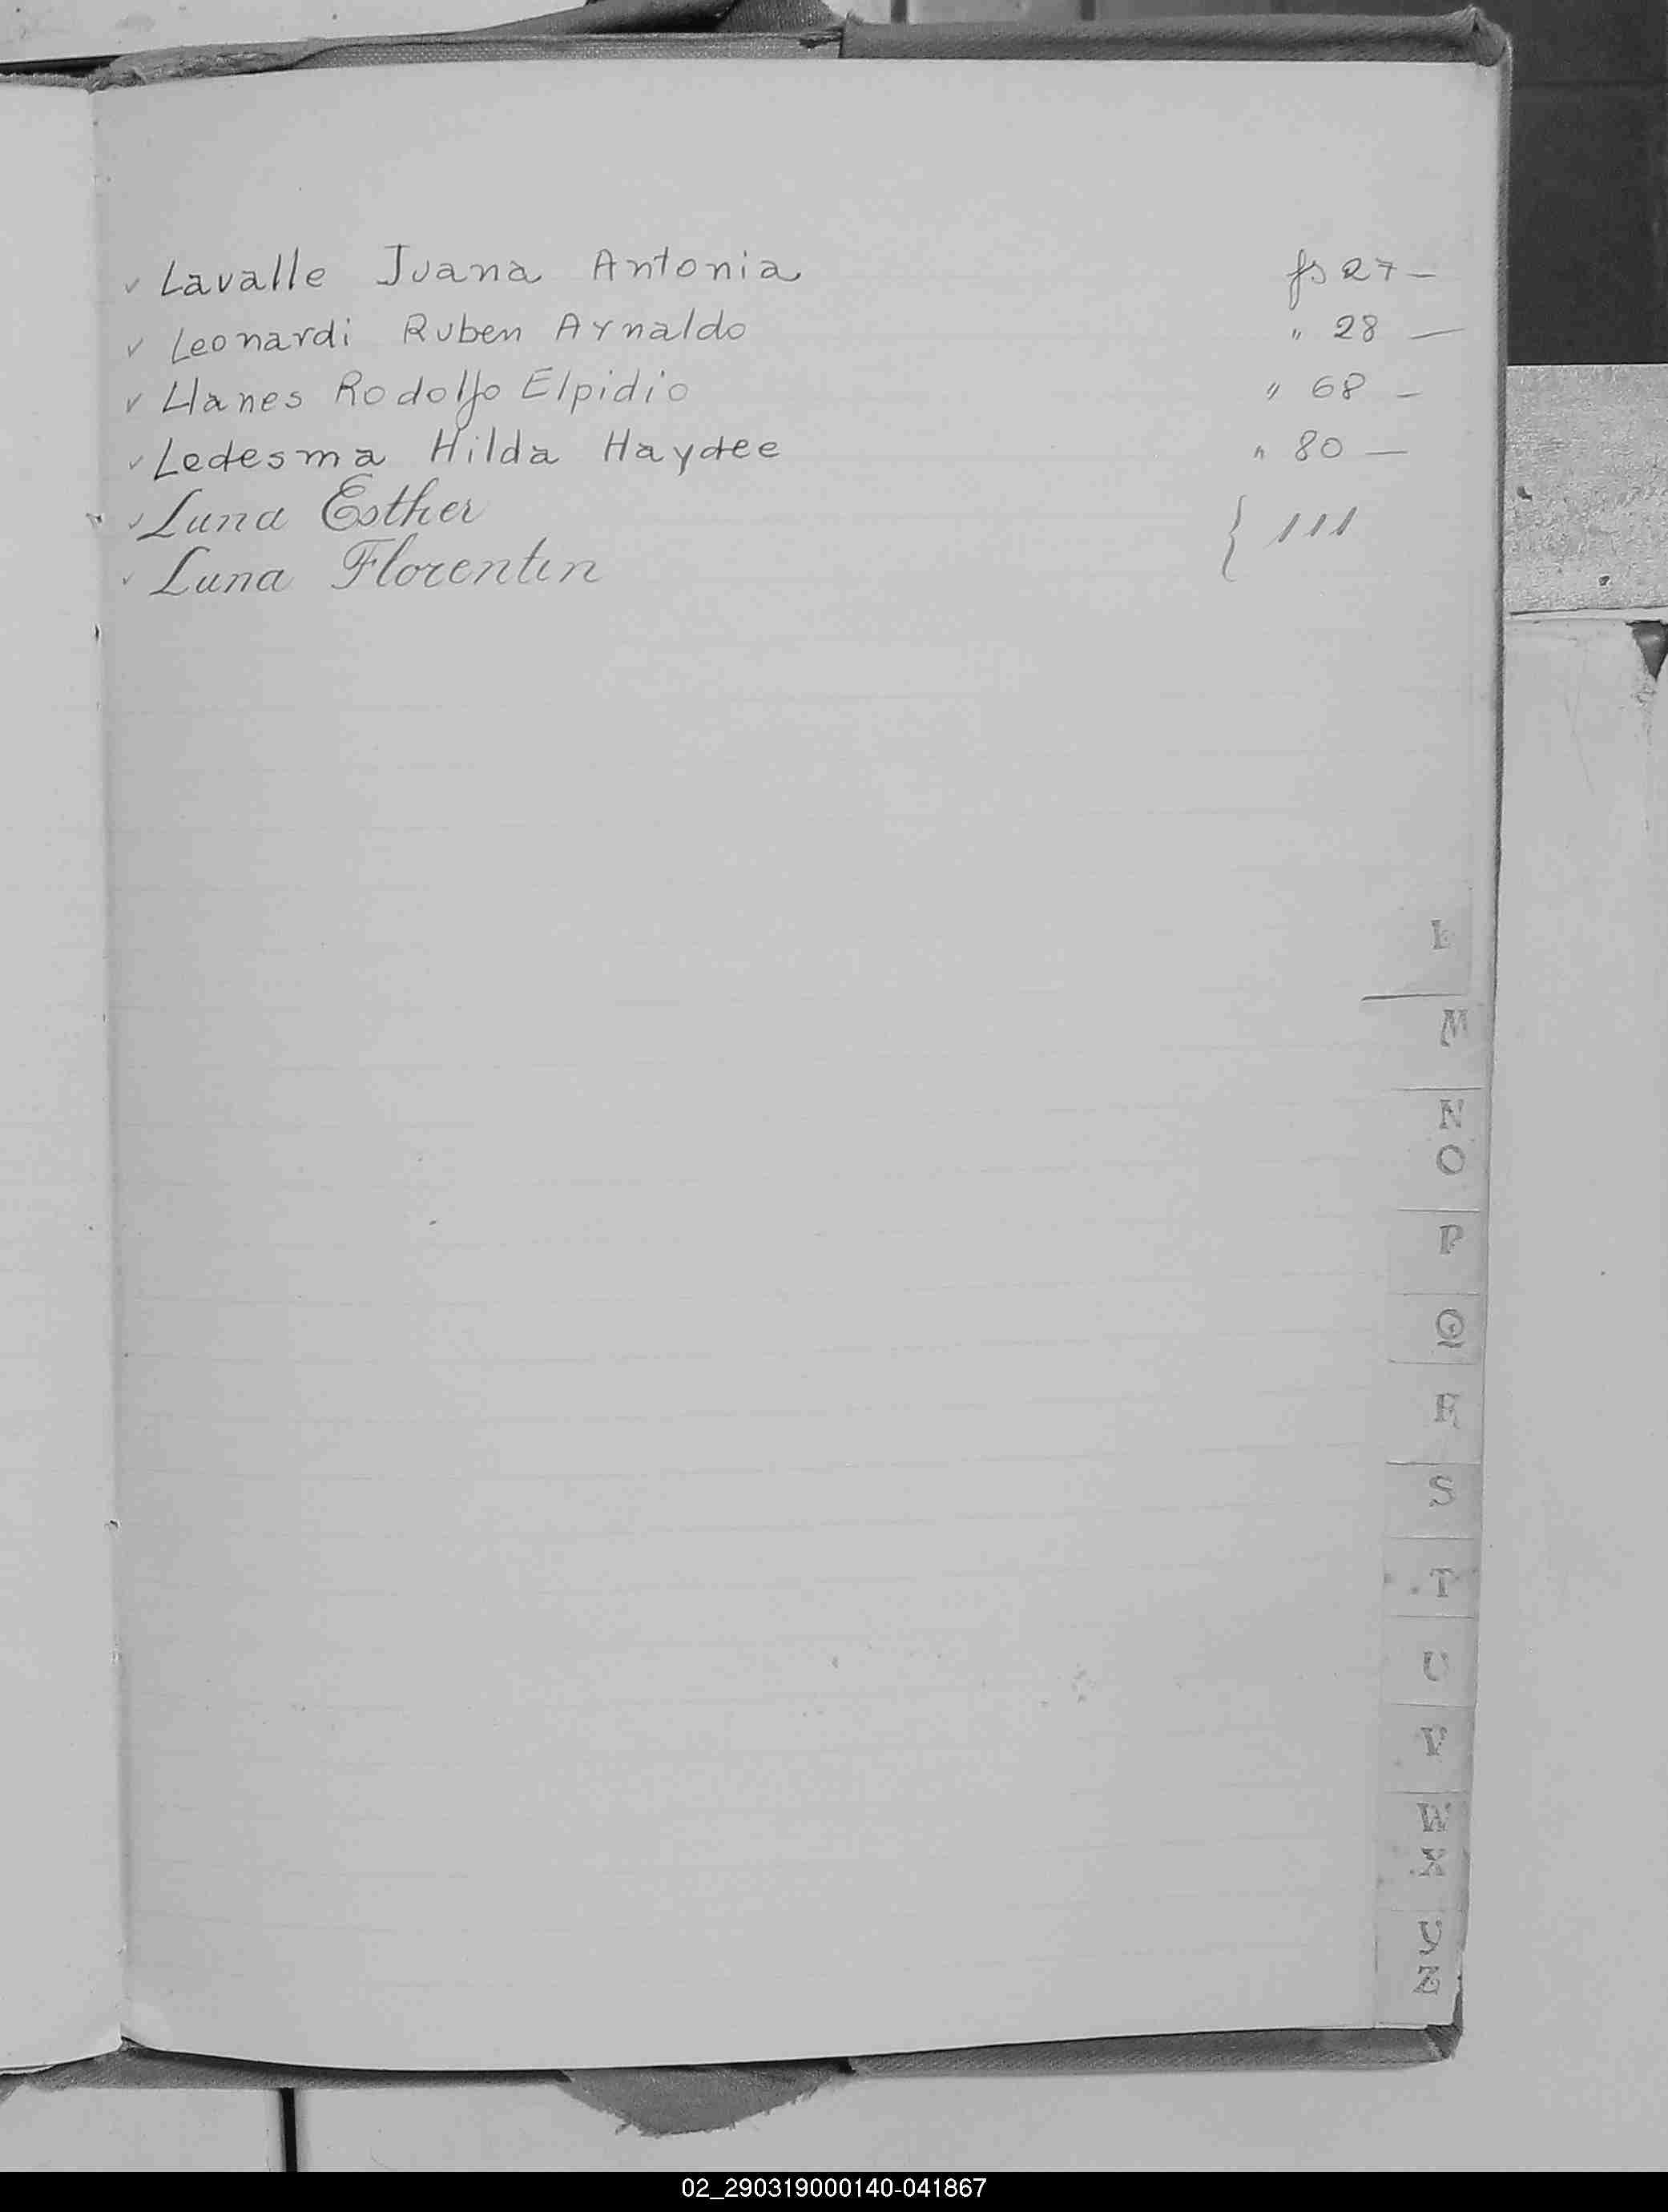 ✓ Lavalle Juana Antonia fs 27 —
✓ Leonardi Ruben Arnaldo " 28 —
✓ Llanes Rodolfo Elpidio " 68 —
✓ Ledesma Hilda Haydee " 80 —
✓ Luna Esther { 111
✓ Luna Florentin
L
M
N
O
P
Q
R
S
T
U
V
W
X
Y
Z
02_290319000140-041867